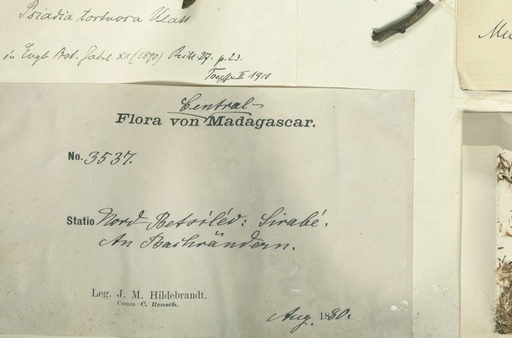 Psiadia tortuosa Klatt
in Engl. Bot. Jahrb. XII (1890) Beibl. 27. p. 23.
II 1910
Central-
Flora von Madagascar.
No. 3537.
Statio Nord-Betsiléo: Sirabé.
An Bachrändern.
Leg. J. M. Hildebrandt.
Comm. C. Rensch.
Aug. 1880.